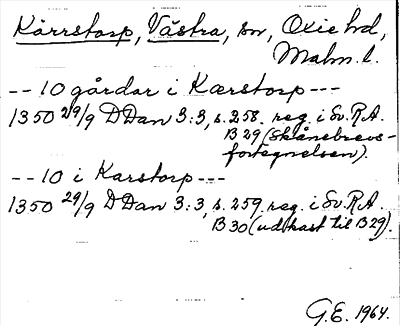 Kärrstorp, Västra, sn, Oxie hd,
Malm. l.
-- 10 gårdar i Kærstorp ---
1350 29/9 DDan 3:3, s. 258. reg. i Sv.R.A.
B 29 (Skånebrevs-
fortegnelsen).
-- 10 i Karstorp ---
1350 29/9 DDan 3:3, s. 259. reg. i Sv.R.A.
B 30 (udkast til B 29).
G.E. 1964.